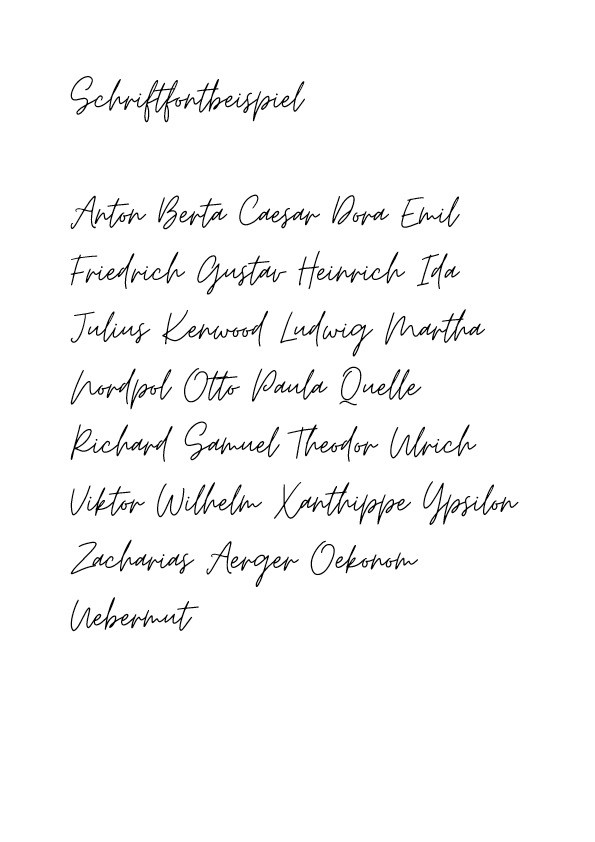 Schriftfontbeispiel
Anton Berta Caesar Dora Emil
Friedrich Gustav Heinrich Ida
Julius Kenwood Ludwig Martha
Nordpol Otto Paula Quelle
Richard Samuel Theodor Ulrich
Viktor Wilhelm Xanthippe Ypsilon
Zacharias Aerger Oekonom
Uebermut